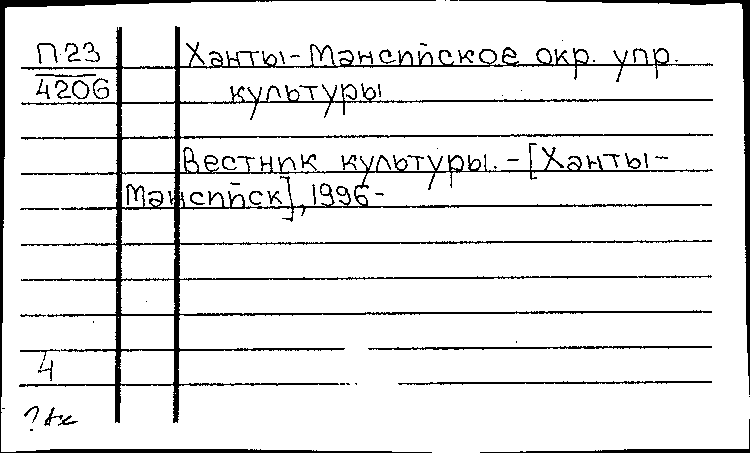 П23 Ханты-Мансийское окр. упр.
4206 культуры
Вестник культуры. -[Ханты-
Мансийск], 1996-
4